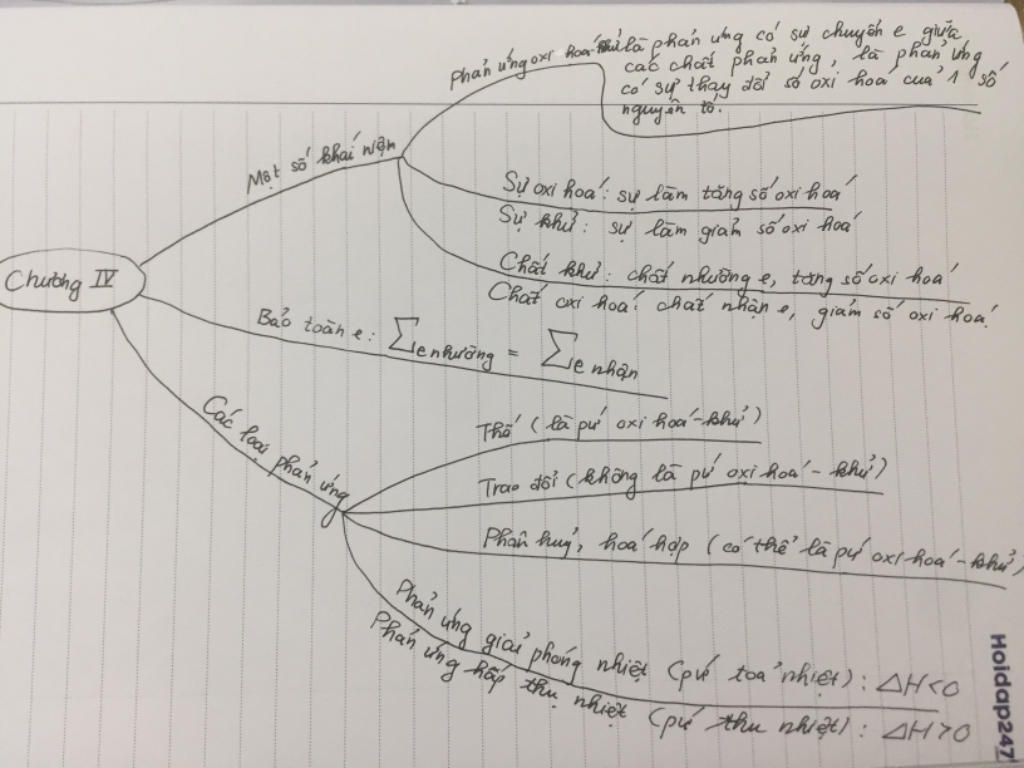 Chương IV
Một số khái niệm
Phản ứng oxi hoá khử là phản ứng có sự chuyển e giữa
các chất phản ứng, là phản ứng
có sự thay đổi số oxi hoá của 1 số
nguyên tố.
Sự oxi hoá: sự làm tăng số oxi hoá
Sự khử: sự làm giảm số oxi hoá
Chất khử: chất nhường e, tăng số oxi hoá
Chất oxi hoá: chất nhận e, giảm số oxi hoá.
Bảo toàn e: ∑e nhường = ∑e nhận
Các loại phản ứng
Thế (là pứ oxi hoá-khử)
Trao đổi (không là pứ oxi hoá - khử)
Phân huỷ, hoá hợp (có thể là pứ oxi hoá-khử)
Phản ứng giải phóng nhiệt (pứ toả nhiệt): ΔH<0
Phản ứng hấp thụ nhiệt (pứ thu nhiệt): ΔH>0
Hoidap247